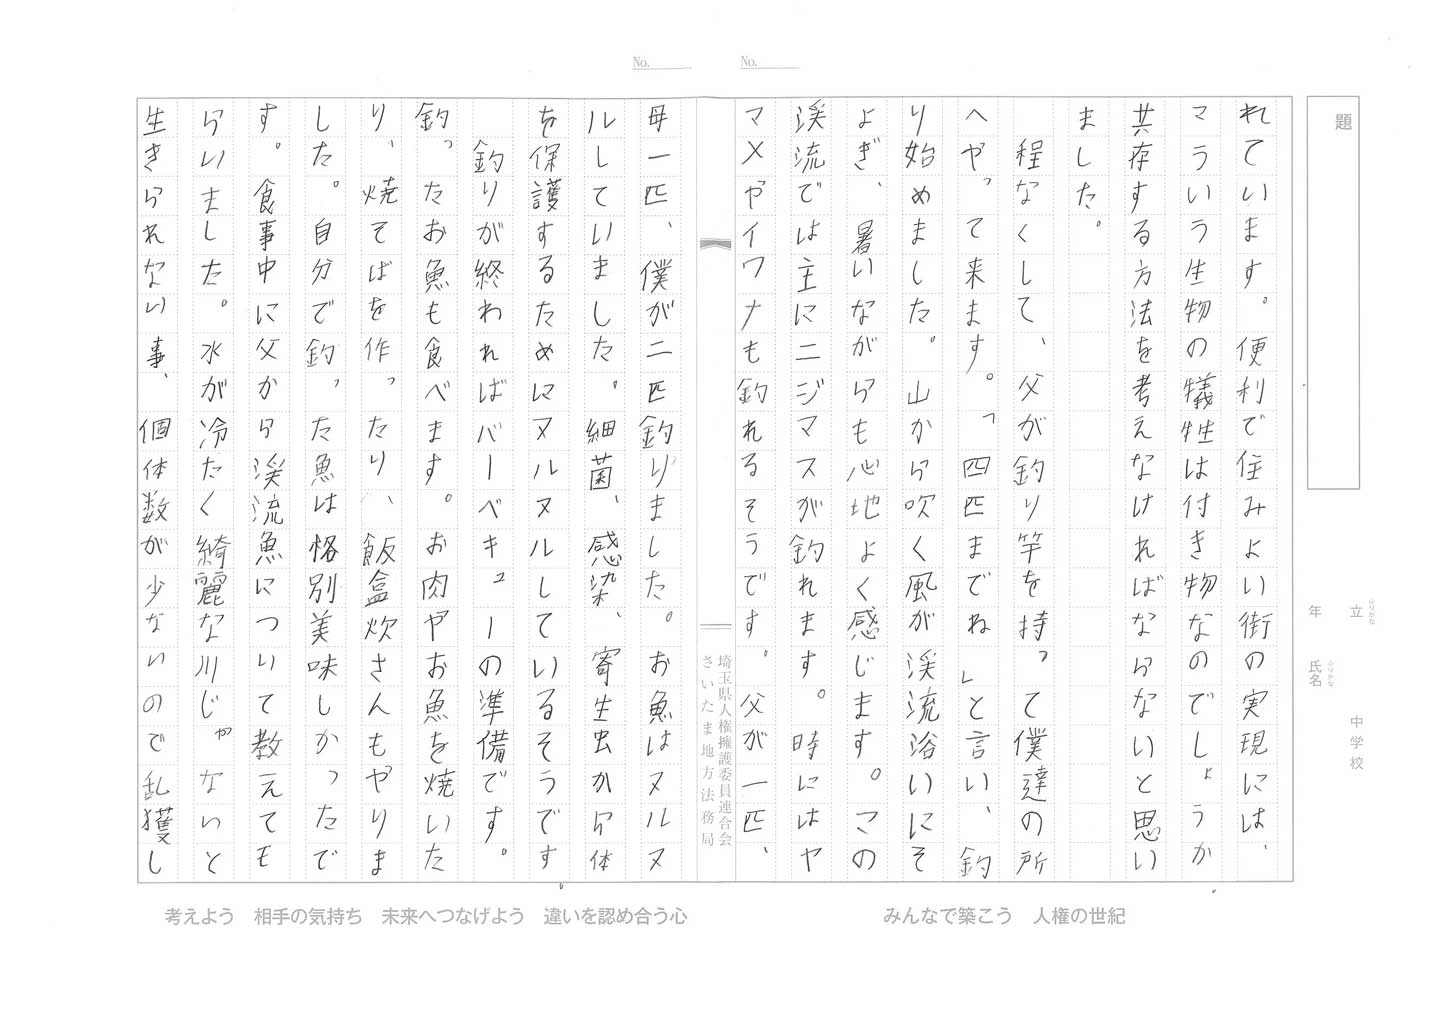 No.
No.
題
立
ふりがな
中学校
年
氏名
ふりがな
れています。便利で住みよい街の実現には、
こういう生物の犠牲は付き物なのでしょうか
共存する方法を考えなければならないと思い
ました。
程なくして、父が釣り竿を持って僕達の所
へやって来ます。「四匹までね」と言い、釣
り始めました。山から吹く風が渓流浴いにそ
よぎ、暑いながらも心地よく感じます。この
渓流では主にニジマスが釣れます。時にはヤ
マメやイワナも釣れるそうです。父が一匹、
埼玉県人権擁護委員連合会
さいたま地方法務局
母一匹、僕が二匹釣りました。お魚はヌルヌ
ルしていました。細菌、感染、寄生虫から体
を保護するためにヌルヌルしているそうです
釣りが終わればバーベキューの準備です。
釣ったお魚も食べます。お肉やお魚を焼いた
り、焼そばを作ったり、飯盒炊さんもやりま
した。自分で釣った魚は格別美味しかったで
す。食事中に父から渓流魚について教えても
らいました。水が冷たく綺麗な川じゃないと
生きられない事、個体数が少ないので乱獲し
みんなで築こう　人権の世紀
考えよう　相手の気持ち　未来へつなげよう　違いを認め合う心